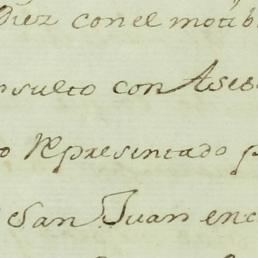 Diez con el motib
nsulto con Ases
o representado p
San Juan en c